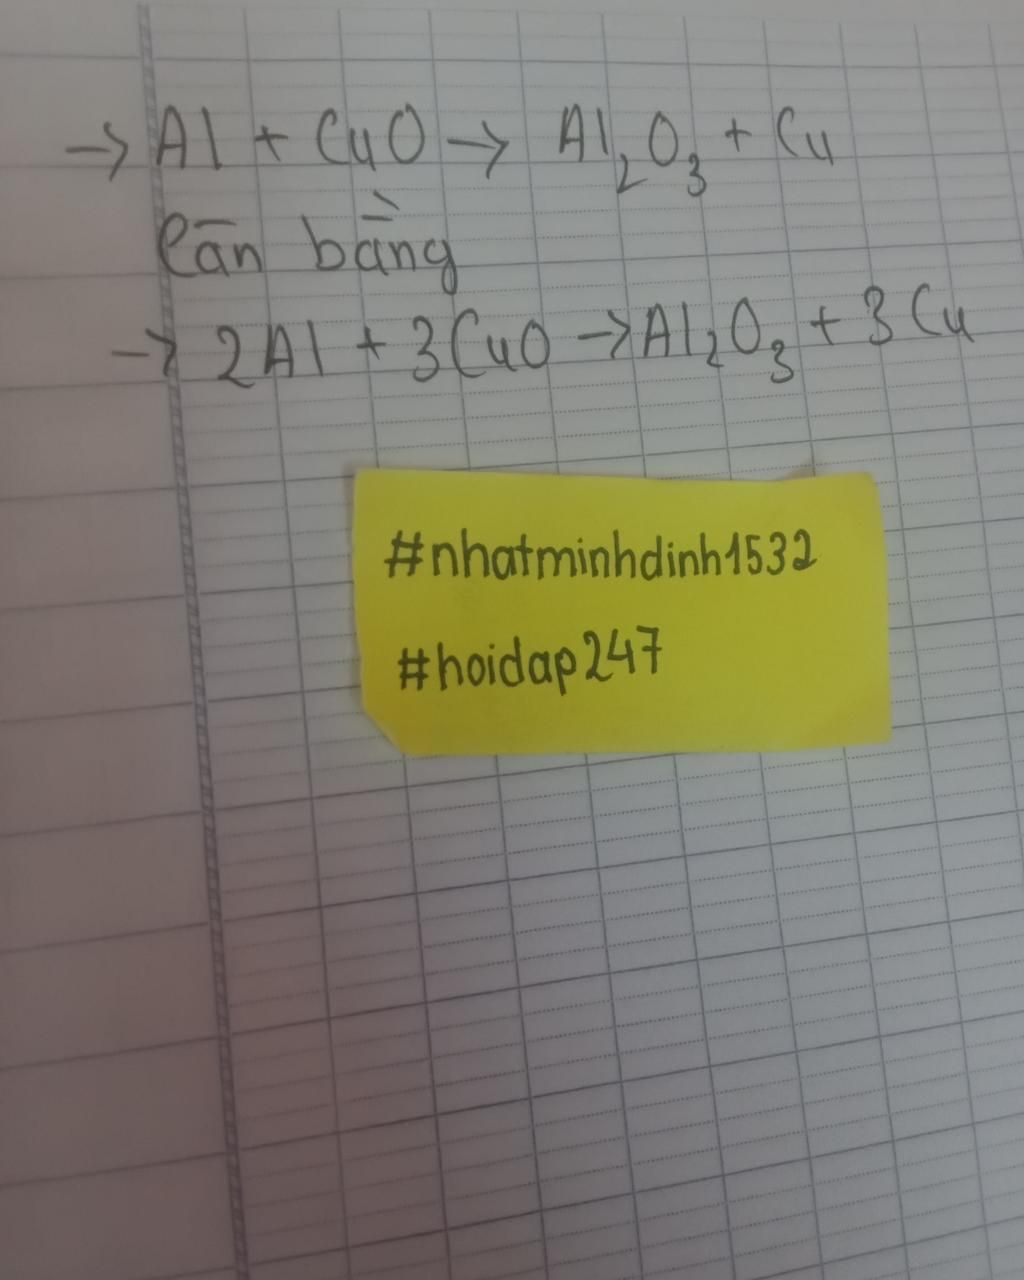 → Al + CuO → Al₂O₃ + Cu
Cān bằng
→ 2Al + 3CuO → Al₂O₃ + 3Cu
#nhatminhdinh1532
#hoidap247